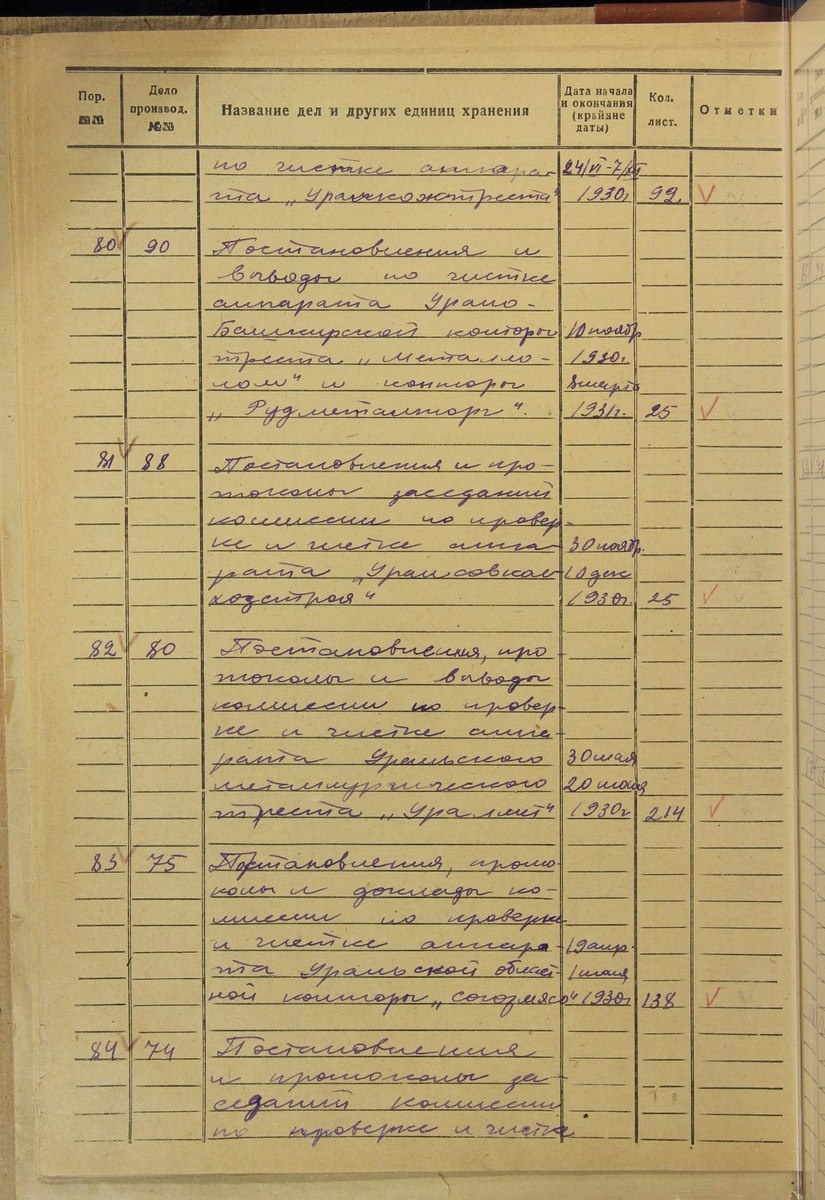 Пор. №№ Дело производ. №№ Название дел и других единиц хранения Дата начала и окончания (крайние даты) Кол. лист. Отметки
по чистке аппара- 24/VI-7/XII
та „Уралкожтреста" 1930г 92
80 90 Постановления и
выводы по чистке
аппарата Урало-
Башкирской конторы 10 ноябр
треста „Металло- 1930г.
лом" и конторы 8 марта
„Рудметалторг". 1931г. 25
81 88 Постановления и про-
токолы заседаний
комиссии по провер-
ке и чистке аппа- 30 ноябр.
рата „Уралсовкол- 10 дек
хозстроя" 1930г. 25
82 80 Постановления, про-
токолы и выводы
комиссии по провер-
ке и чистке аппа-
рата Уральского 30 мая
металлургического 20 июня
треста „Уралмет" 1930г 214
83 75 Постановления, прото-
колы и доклады ко-
миссии по проверке
и чистке аппара- 19 апр.
та Уральской област- 1 июня
ной конторы „Союзмясо" 1930г 138
84 74 Постановления
и протоколы за-
седаний комиссии
по проверке и чистке